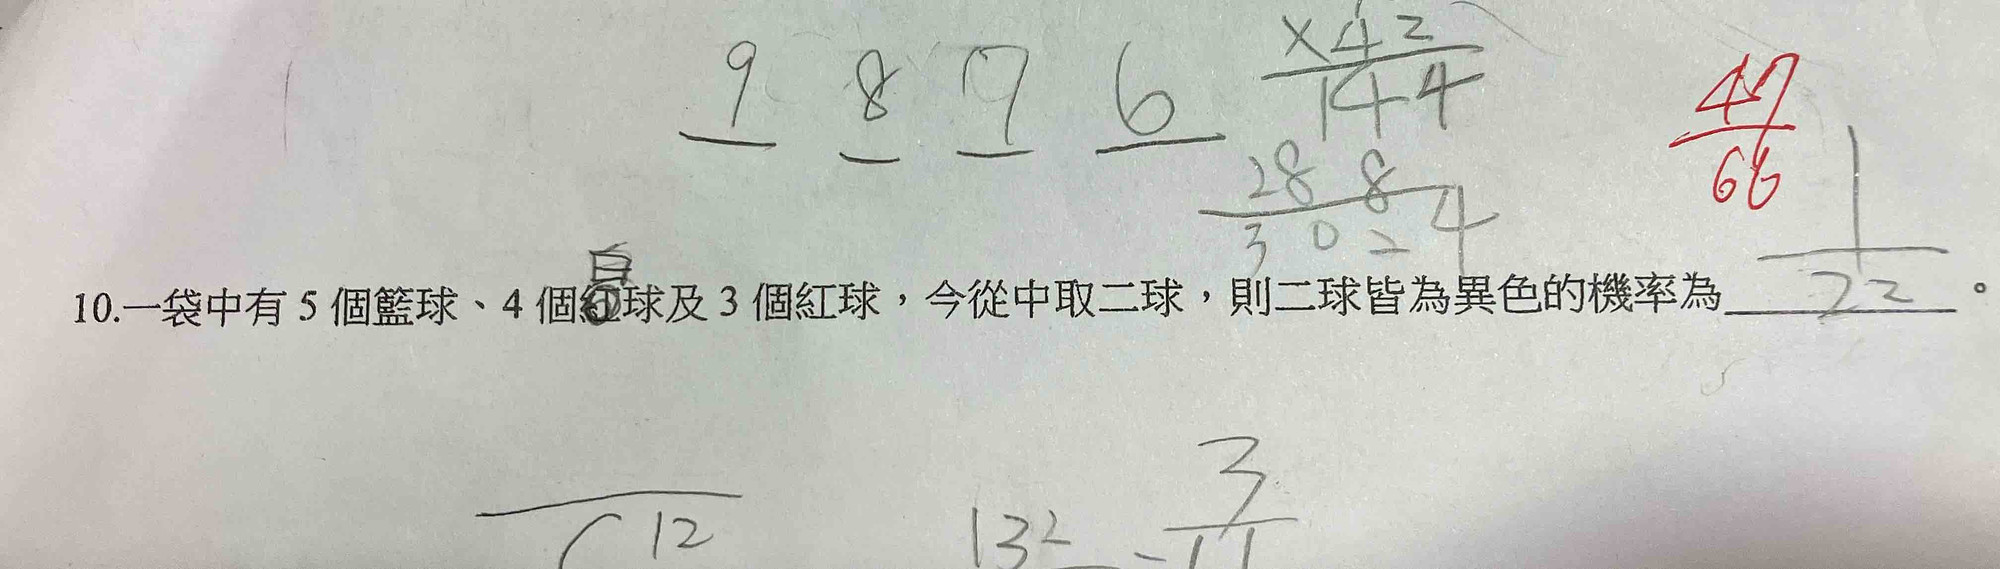 9 8 7 6
×42
144
288
3024
47
66
白
10.一袋中有 5 個籃球、4 個球及 3 個紅球，今從中取二球，則二球皆為異色的機率為
1
22
。
3
C 12
132 - 11